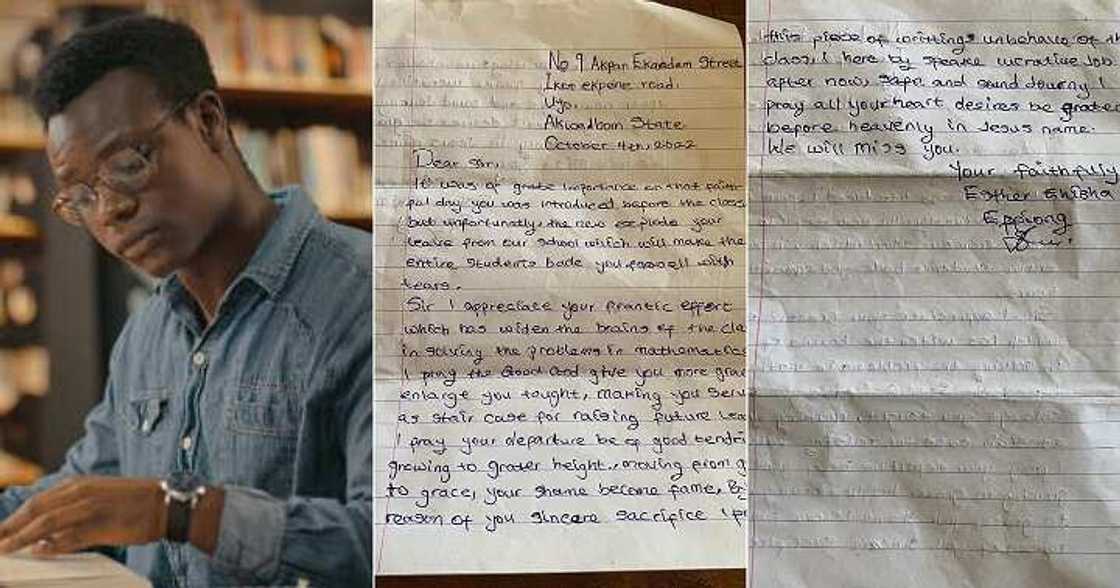 No 9 Akpan Ekandam Street
Ikot ekpene road.
Uyo.
Akwa Ibom State
October 4th, 2022
Dear Sir,
It was of grate importance on that faith-
ful day you was introduced before the class
but unfortunatly, the new explode your
leave from our school which will make the
entire students bade you farewell with
tears.
Sir I appreciate your frantic effort
which has widen the brains of the cla
in solving the problems in mathematics
I pray the Good God give you more grac
enlarge you tought, making you serv
as stair case for raising future lea
I pray your departure be of good tendi
growing to grater height, moving from g
to grace, your shame become fame, B
reason of you sincere sacrifice I p
this piece of writting unbehave of th
class, I here by speake lucrative Job
after now, safe and sound Journy I
pray all your heart desires be grate
before heavenly in Jesus name.
We will miss you.
Your faithfully
Esther
Effiong